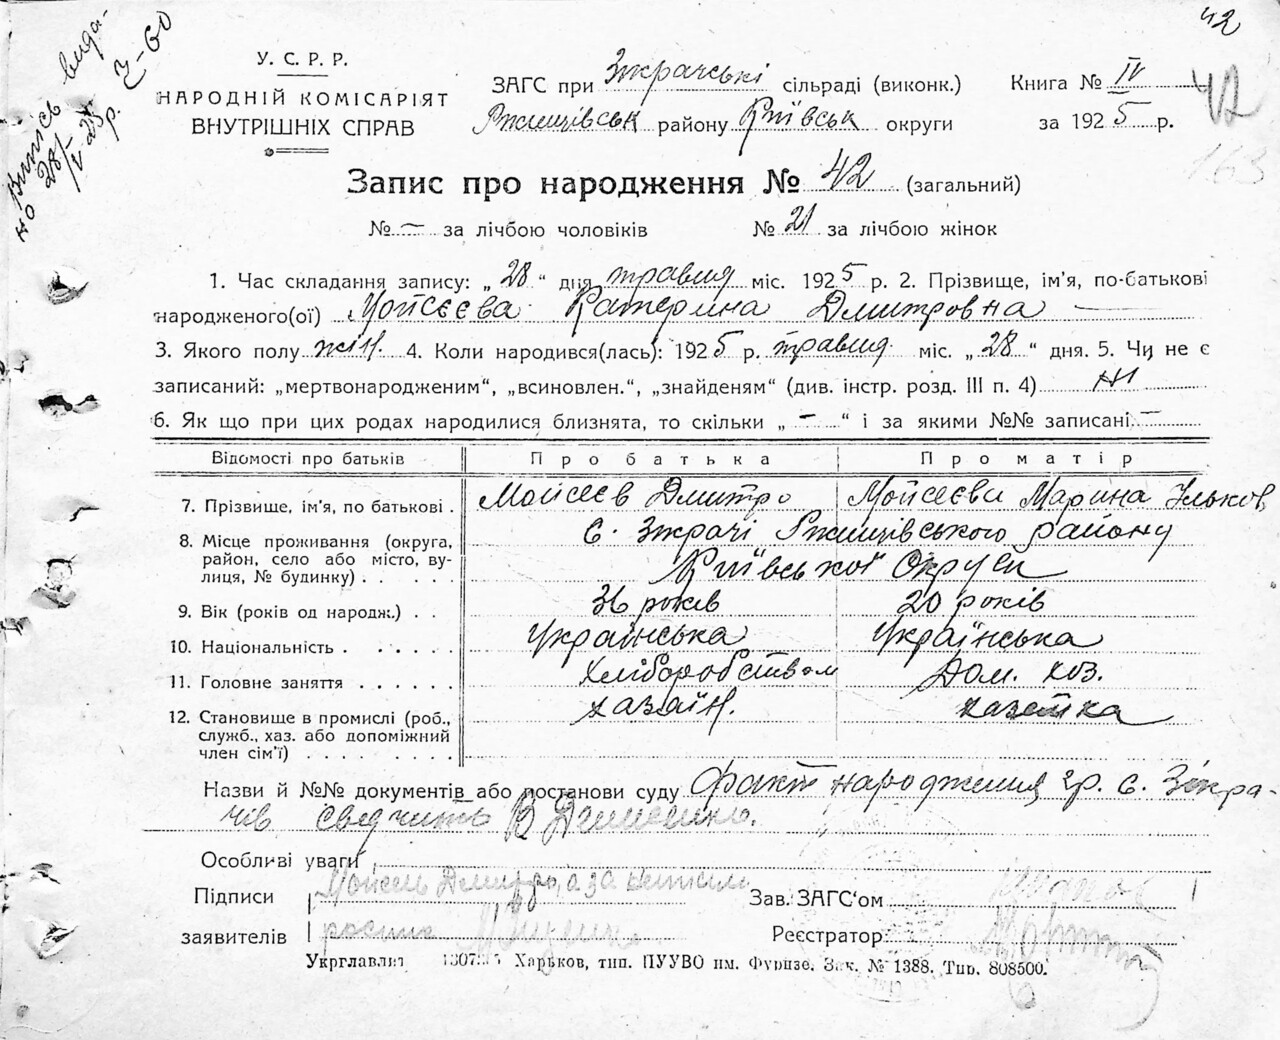 42
Випись вида-
но 28/IV-25 р. З-60
У. С. Р. Р.
НАРОДНІЙ КОМІСАРІЯТ
ВНУТРІШНІХ СПРАВ
ЗАГС при Зікрачські сільраді (виконк.)
Ржищівськ району Київськ округи
Книга № IV
за 1925 р.
42
163
Запис про народження № 42 (загальний)
№ — за лічбою чоловіків № 21 за лічбою жінок
1. Час складання запису: „28“ дня травня міс. 1925 р. 2. Прізвище, ім'я, по-батькові
народженого(ої) Мойсєєва Катерина Дмитровна
3. Якого полу жін. 4. Коли народився(лась): 1925 р. травня міс. „28“ дня. 5. Чи не є
записаний: „мертвонародженим“, „всиновлен.“, „знайденям“ (див. інстр. розд. III п. 4) ні
6. Як що при цих родах народилися близнята, то скільки „—“ і за якими №№ записані —
Відомості про батьків Про батька Про матір
7. Прізвище, ім'я, по батькові . Мойсєєв Дмитро Мойсєєва Марина Ільков
8. Місце проживання (округа, район, село або місто, вулиця, № будинку) . . . . . с. Зікрачі Ржищівського району
Київської Округи
9. Вік (років од народж.) . . 36 років 20 років
10. Національність . . . . . . Українська Українська
11. Головне заняття . . . . . . Хліборобством Дом. хоз.
12. Становище в промислі (роб., служб., хаз. або допоміжний член сім'ї) . . . . . . . . хазаїн. хазяйка
Назви й №№ документів або постанови суду Факт народження гр. с. Зікра-
чів свідчить В
Особливі уваги
Підписи Мойсєєв Дмитро, а за
Зав. ЗАГС'ом
заявителів
Реєстратор
Укрглавліт Харьков, тип. ПУУВО им. Фрунзе. Зак. № 1388. Тир. 808500.